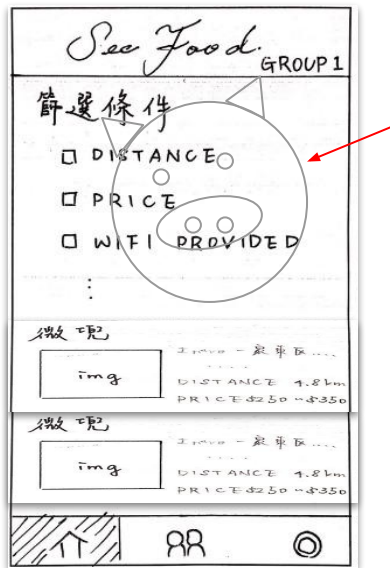 See Food.
GROUP 1
篩選條件
DISTANCE
PRICE
WIFI PROVIDED
微兜
img
DISTANCE 4.8km
PRICE $250~$350
微兜
img
DISTANCE 4.8km
PRICE $250~$350